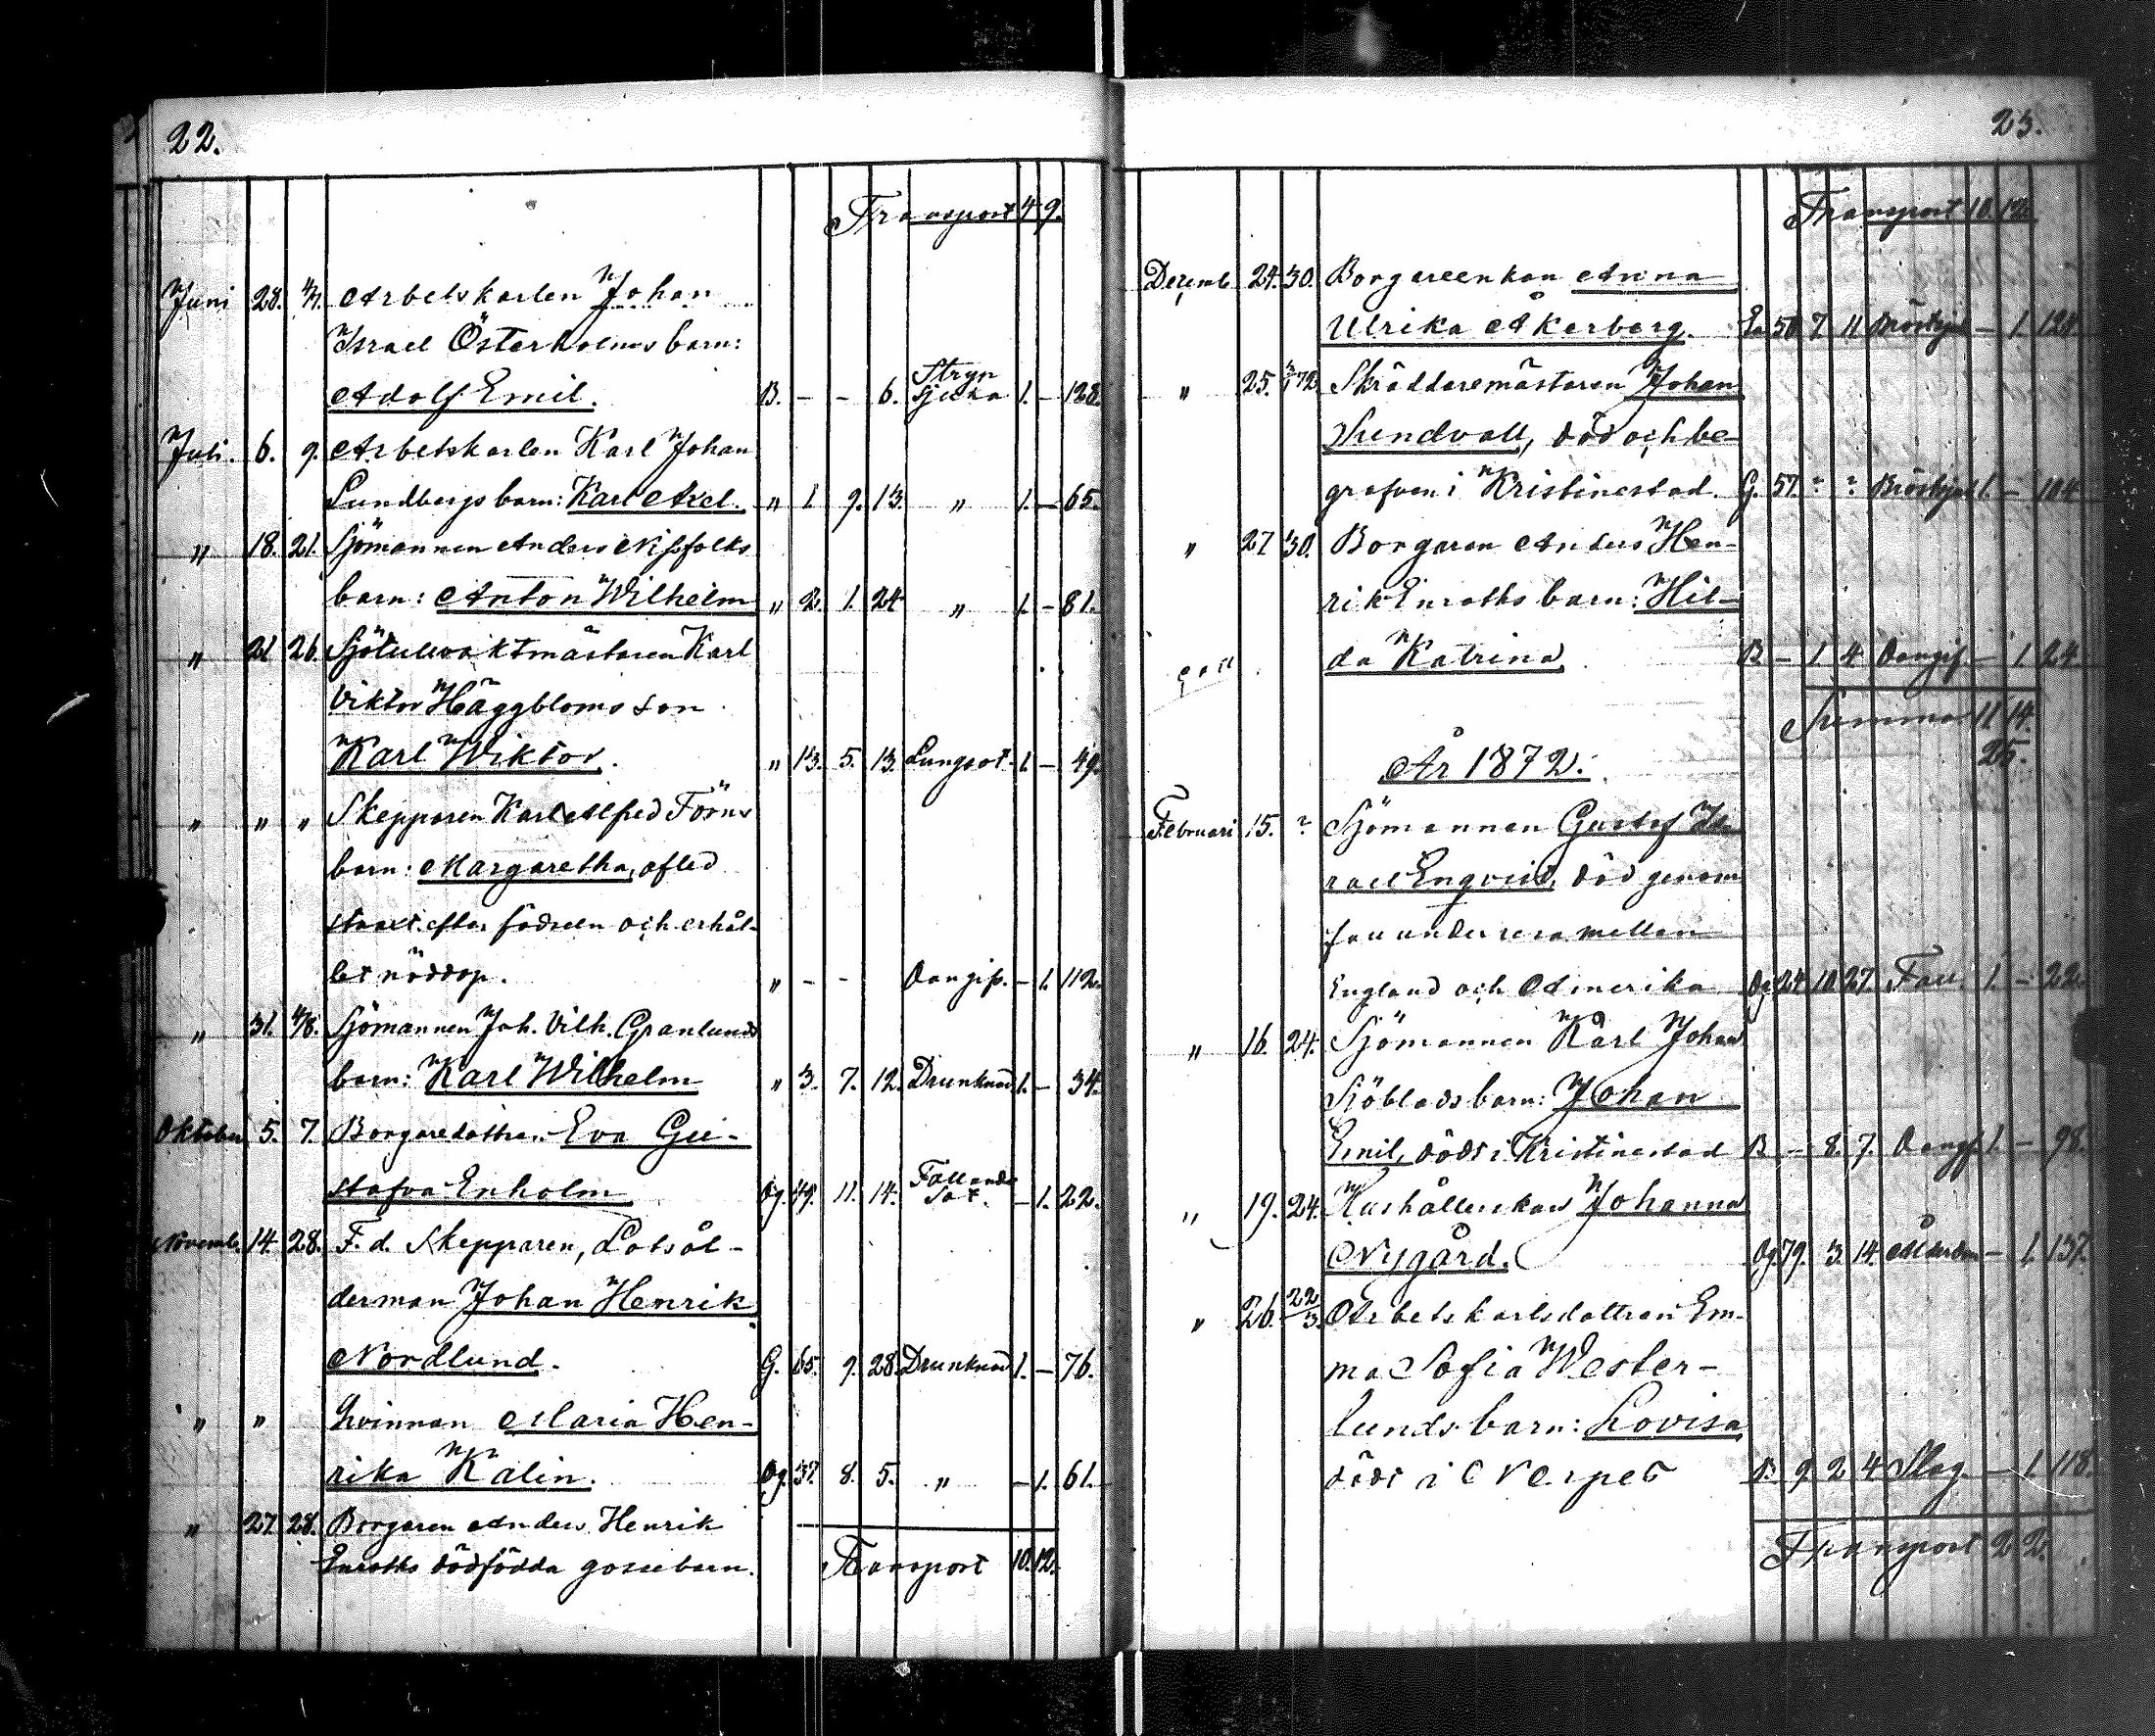 22.
Transport 4 9.
Juni 28. 4/7. Arbetskarlen Johan
Israel Österholms barn:
Stryp
Adolf Emil. B. - - 6. sjuka 1. - 128.
Juli. 6. 9. Arbetskarlen Karl Johan
Lundbergs barn: Karl Axel. " 1. 9. 13. " 1. - 65.
" 18. 21. Sjömannen Anders
barn: Anton Wilhelm " 2. 1. 24 " 1. - 81.
" 21 26. Sjötullvaktmästaren Karl
Viktor Häggbloms son
Karl Wiktor. " 13. 5. 13. Lungsot. 1. - 49.
" " " Skepparen Karl Alfred Förns
barn: Margaretha, afled
straxt efter födseln och erhål-
let nöddop. " - - Oangif. - 1. 112.
" 31. 4/8. Sjömannen Joh. Vilh. Granlunds
barn: Karl Wilhelm " 3. 7. 12. Drunknad 1. - 34.
Oktober 5. 7. Borgaredottren Eva Gu-
Fallande
stafva Enholm Og. 49. 11. 14. sot. - 1. 22.
Novemb. 14. 28. F. d. Skepparen, Lotsål-
derman Johan Henrik
Nordlund. G. 65. 9. 28. Drunknad 1. - 76.
" " Qvinnan Maria Hen-
rika Kälin. Og. 37. 8. 5. " - 1. 61.
" 27. 28. Borgaren Anders Henrik
Enroths dödfödda gossebarn.
Transport 10. 12.
23.
Transport 10. 12.
Decemb. 24. 30. Borgareenkan Anna
Ulrika Åkerberg. Ea 50 7 11 Bröstsjuk - 1. 128
" 25. 72 Skräddaremästaren Johan
Sundvall, död och be-
grafven i Kristinestad. G. 57. ? ? Bröstsjuk 1. - 104
" 27 30. Borgaren Anders Hen-
rik Enroths barn: Hil-
da Katrina. B - 1 4 Oangif. - 1. 24.
Summa 11 14.
25.
År 1872.
Februari 15. ? Sjömannen Gustaf Is-
rael Enqvist, död genom
fall under resa mellan
England och Amerika Og 24 10 27. Fall. 1. - 22
" 16. 24. Sjömannen Karl Johan
Sjöblads barn: Johan
Emil, dödt i Kristinestad B - 8. 7. Oangif. 1. - 98.
" 19. 24. Hushållerskan Johanna
Nygård. Og. 79. 3. 14. Ålderdom - 1. 137.
" 26. 22/3. Arbetskarlsdottren Em-
ma Sofia Wester-
lunds barn: Lovisa
dödt i Nerpes B. 9 2 4 Slag. - 1. 118.
Transport 2 2.